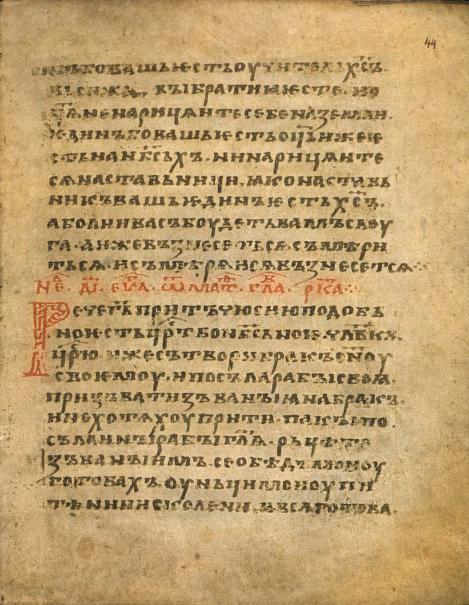 нъ бо вашь ѥстъ оучитель х҃съ.
вьси жа вꙑ братиꙗ ѥсте. и о
ц҃ѧ не нарицѧите себе на земли.
ѥдинъ бо вашь ѥстъ оц҃ь иже ѥ
стъ на нб҃сьхъ. ни нарицѧите
сѧ наставьници. ꙗко наставь
никъ вашь ѥдинъ ѥстъ х҃съ.
а болии васъ боудетъ вамъ слоу
га. а иже възнесетьсѧ съмѣри
тьсѧ. и съмѣрѧи сѧ възнесетсѧ
Не҃. ді҃. еѵа. ѿ мат. гла. рк҃а.
Рече г҃ь притъчю сию подобь
но ѥстъ цр҃тво нб҃сноѥ чл҃вкꙋ
цр҃ю. иже сътвори бракъ сн҃оу
своѥмоу. и посъла рабꙑ своѩ
призъватъ зъванꙑꙗ на бракъ
и не хотѧхоу прити. пакꙑ по
съла инꙑ рабꙑ гл҃ѧ. рьцѣте
зъванꙑимъ. се обѣдъ мои оу
готовахъ. оуньци мои оупи
тѣнии исколени. и вьсѧ готова.
44